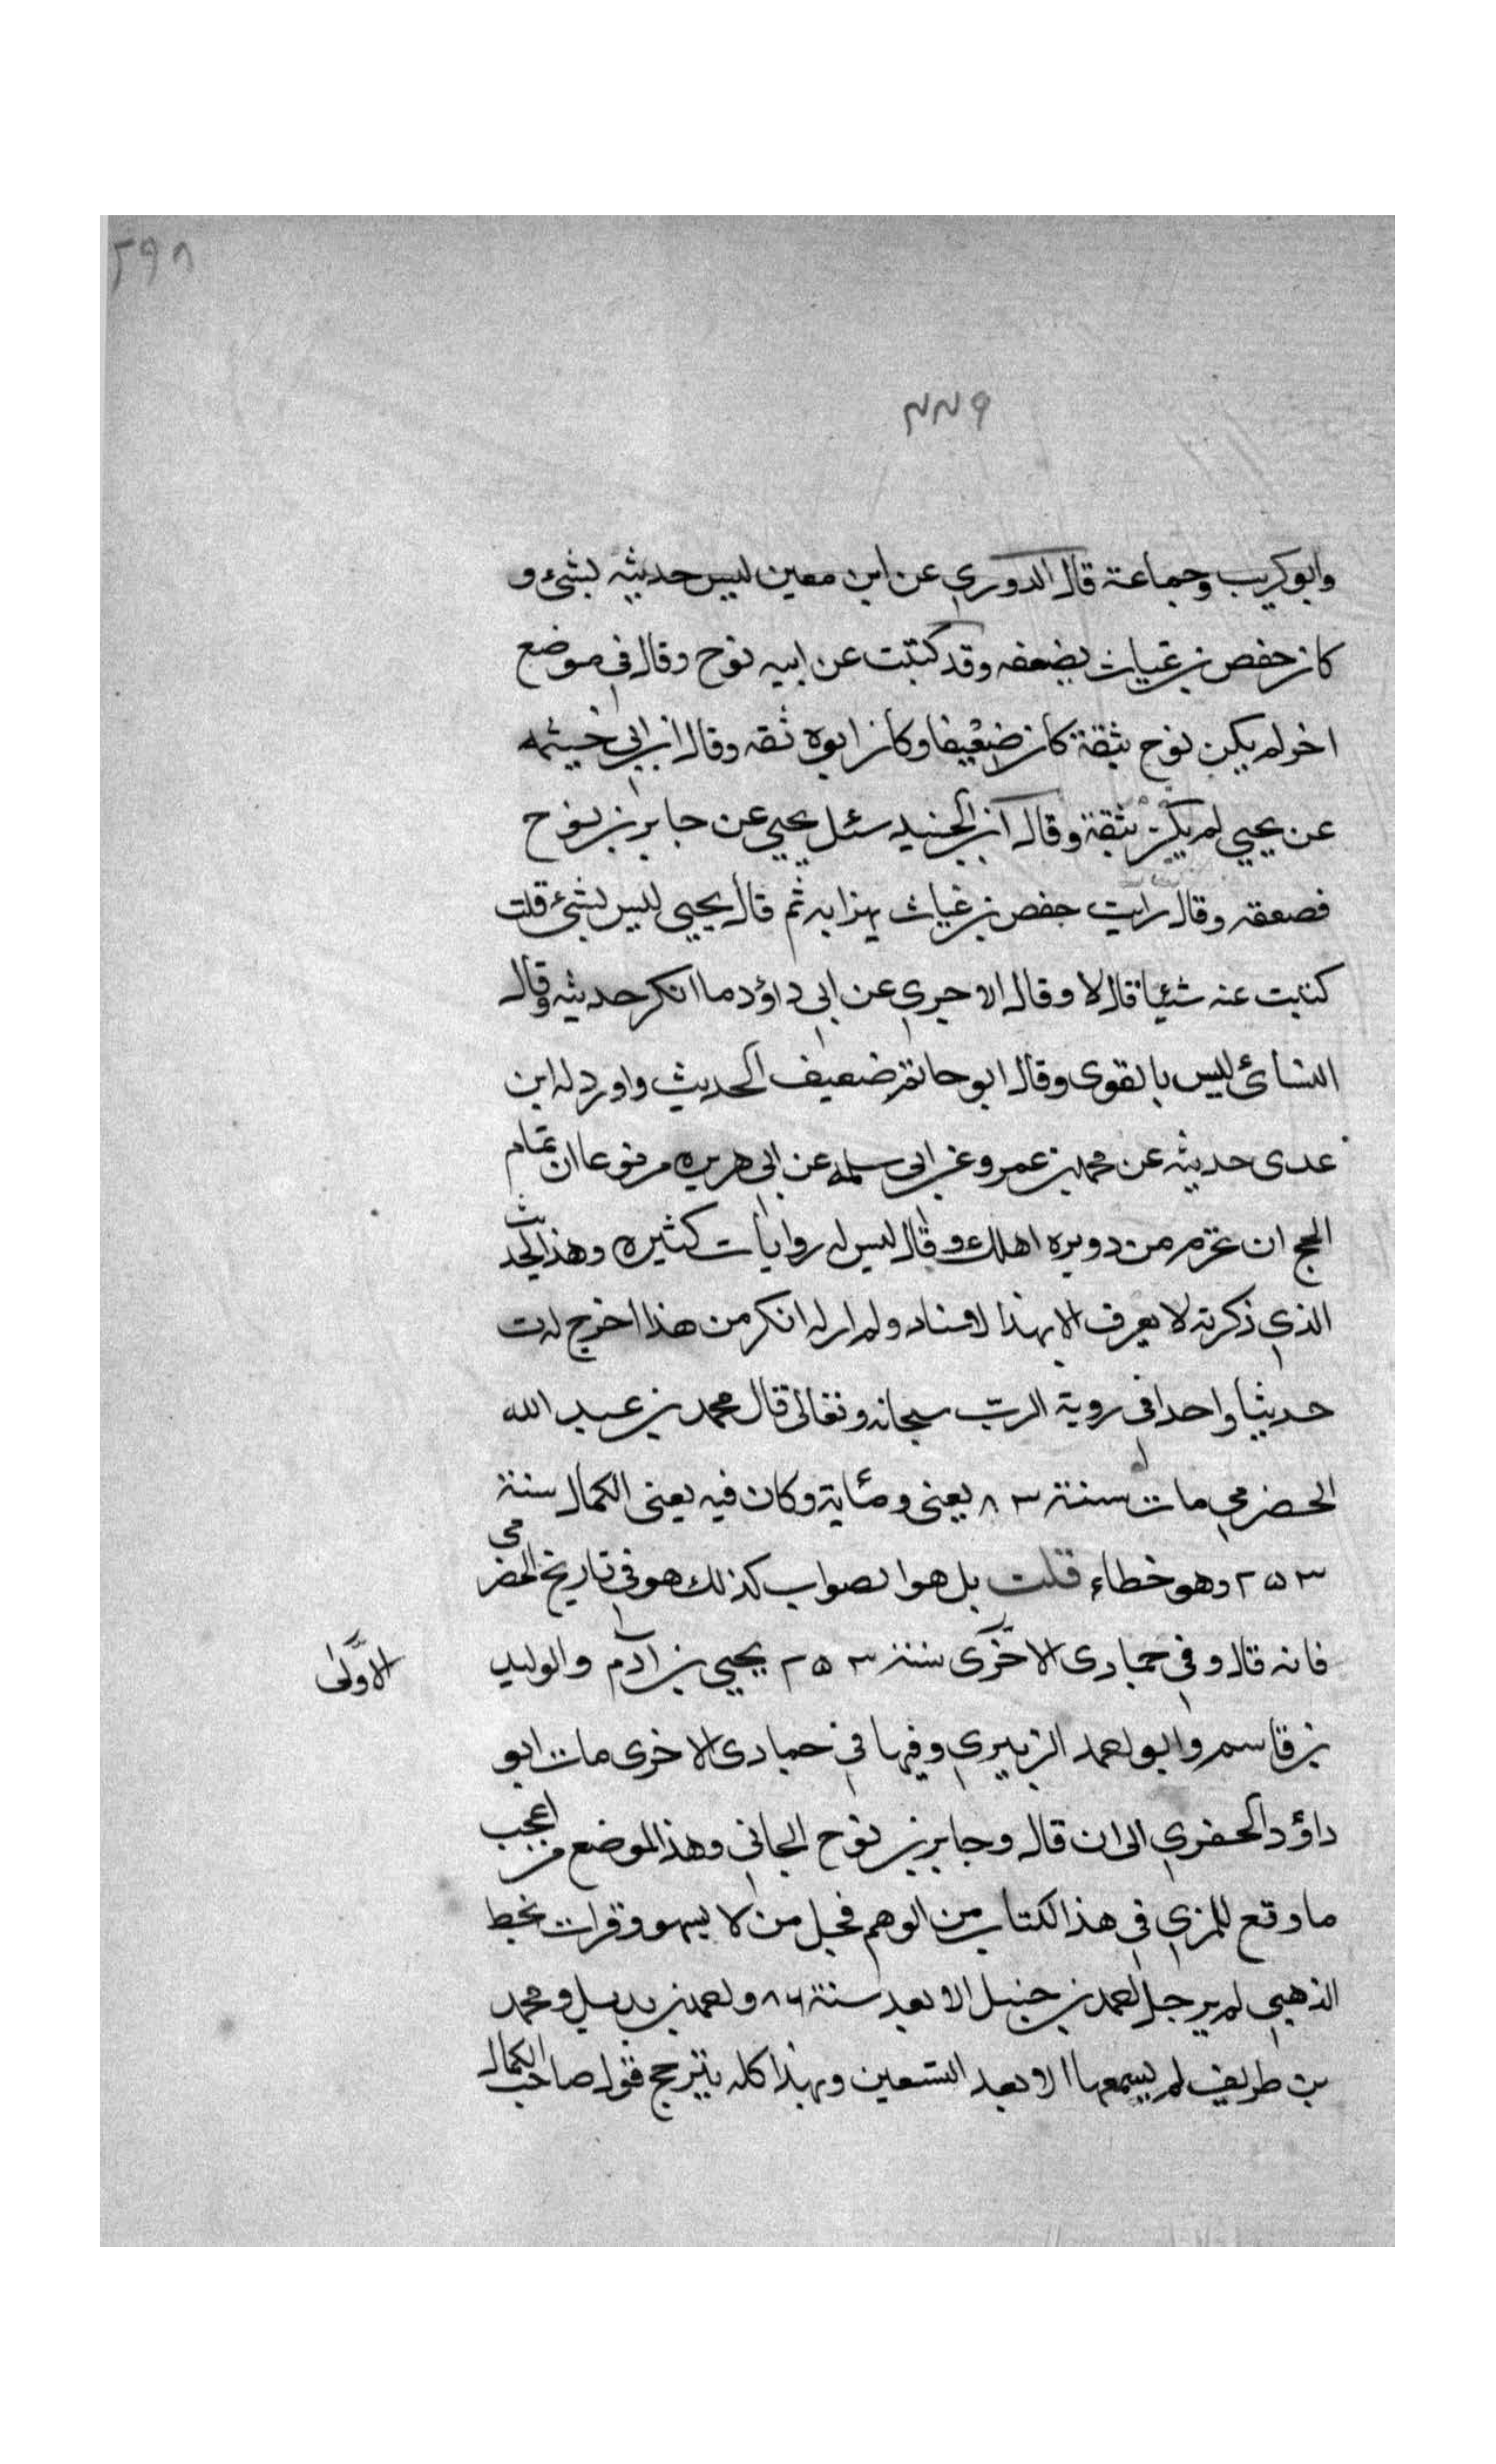 ٢٩٨
٤٤٩
وابو كريب وجماعة قال الدوري عن ابن معين ليس حديثه بشئ و
كان حفص بن غياث يضعفه وقد كتبت عن ابيه نوح وقال في موضع
اخر لم يكن نوح بثقة كان ضعيفا وكان ابوه ثقه وقال ابن ابي خيثمه
عن يحيي لم يكن بثقة وقال ابن الجنيد سئل يحيي عن جابر بن نوح
فضعفه وقال رايت حفص بن غياث يهزا به ثم قال يحيي ليس بشئ قلت
كتبت عنه شئيا قال لا وقال الاجري عن ابي داؤد ما انكر حديثه وقال
النسائ ليس بالقوى وقال ابو حاتم ضعيف الحديث واورد له ابن
عدى حديثه عن محمد بن عمرو عن ابي سلمه عن ابي هريره مرفوعا ان تمام
الحج ان تحرم من دويره اهلك وقال ليس له روايات كثيره وهذا الحديث
الذي ذكرته لا يعرف الا بهذا لاسناد ولم ار له انكر من هذا اخرج له ت
حديثا واحدا في روية الربّ سبحانه وتعالى قال محمد بن عبد الله
الحضرمي مات سنة ٨٣ يعنى ومئاية وكان فيه يعنى الكمال سنة
٢٥٣ وهو خطاء قلت بل هو الصواب كذلك هو في تاريخ الحضرمي
فانه قال وفي جمادى الاخرى سنة ٢٥٣ يحيي بن آدم والوليد
الاولى
بن قاسم وابو احمد الزبيري وفيها في جمادى الاخرى مات ابو
داؤد الحفري الى ان قال وجابر بن نوح الحانى وهذا الموضع من اعجب
ما وقع للمزي في هذا الكتاب من الوهم فجل من لا يسهو وقرات بخط
الذهبي لم يرحل احمد بن حنبل الا بعد سنة ٨٦ واحمد بن بديل ومحمد
بن طريف لم يسمعها الا بعد التسعين وبهذا كله يترجح قول صاحب الكمال